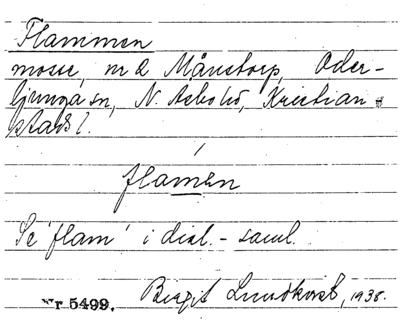 Flammen
mosse, m Månstorp, Oder-
ljunga sn, N. Åsbo hd, Kristian-
stads l.
flamen
Se 'flam' i dial.-saml.
Nr 5499. Birgit Lundkvist, 1938.